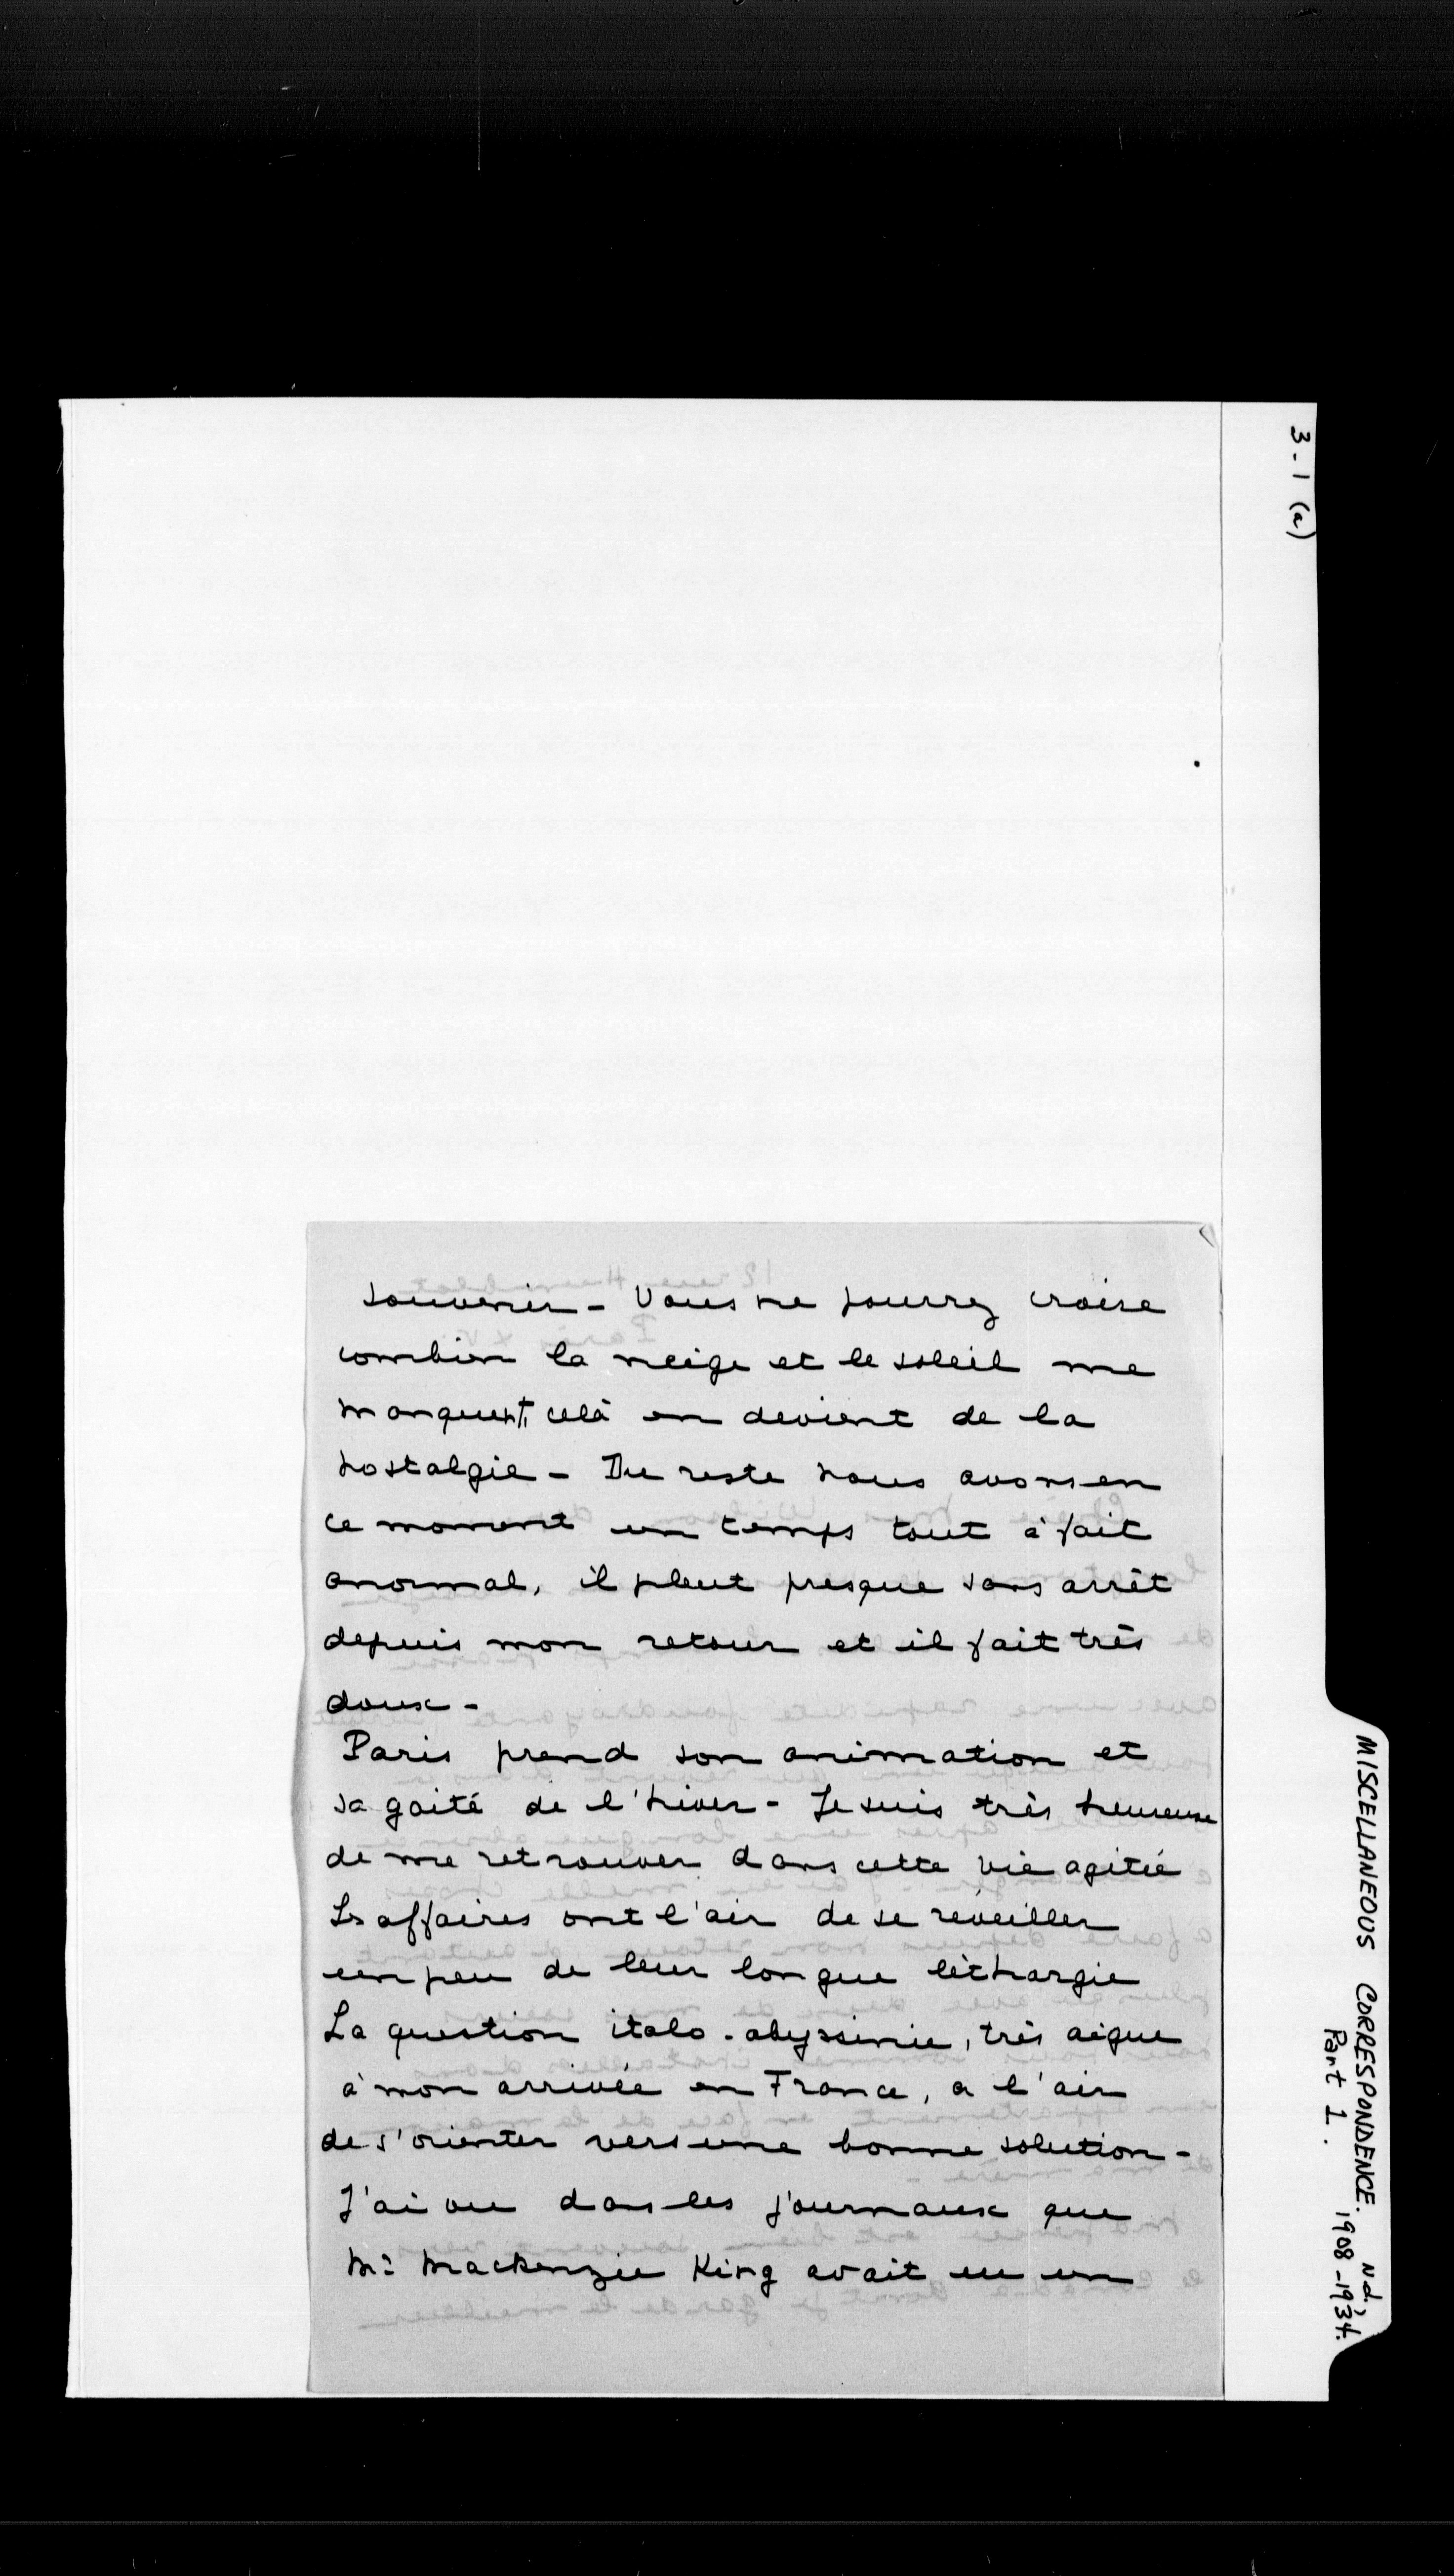 3-1 (a)
MISCELLANEOUS CORRESPONDENCE. n.d., 1908-1934.
Part 1.
souvenir - Vous ne pourrez croire
combien la neige et le soleil me
manquent, celà en devient de la
nostalgie - Du reste nous avons en
ce moment un temps tout à fait
anormal, il pleut presque sans arrêt
depuis mon retour et il fait très
doux -
Paris prend son animation et
sa gaité de l'hiver - Je suis très heureuse
de me retrouver dans cette vie agitée
Les affaires ont l'air de se réveiller
un peu de leur longue léthargie
La question italo-abyssinie, très aigue
à mon arrivée en France, a l'air
de s'orienter vers une bonne solution -
J'ai vu dans les journaux que
Mr Mackenzie King avait eu un